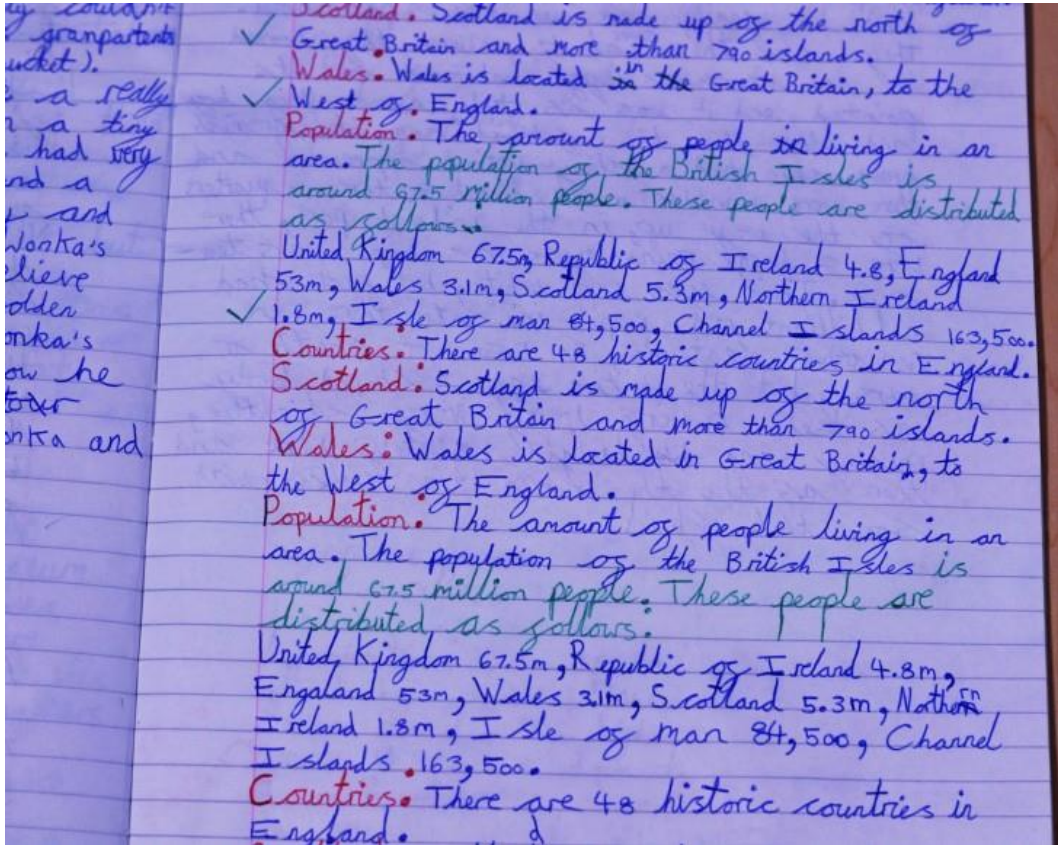 y couldn't
granpartents
ucket).
a really
a tiny
had very
nd a
and
Wonka's
elieve
olden
onka's
ow he
onka and
Scotland. Scotland is made up of the north of
Great Britain and more than 790 islands.
Wales. Wales is located in the Great Britain, to the
West of England.
Population. The amount of people in living in an
area. The population of the British Isles is
around 67.5 million people. These people are distributed
as follows.
United Kingdom 67.5m, Republic of Ireland 4.8, England
53m, Wales 3.1m, Scotland 5.3m, Northern Ireland
1.8m, Isle of man 84,500, Channel Islands 163,500.
Countries. There are 48 historic countries in England.
Scotland: Scotland is made up of the north
of Great Britain and more than 790 islands.
Wales: Wales is located in Great Britain, to
the West of England.
Population: The amount of people living in an
area. The population of the British Isles is
around 67.5 million people. These people are
distributed as follows:
United Kingdom 67.5m, Republic of Ireland 4.8m,
Engaland 53m, Wales 3.1m, Scotland 5.3m, Nothern
Ireland 1.8m, Isle of man 84,500, Channel
Islands .163,500.
Countries. There are 48 historic countries in
England.